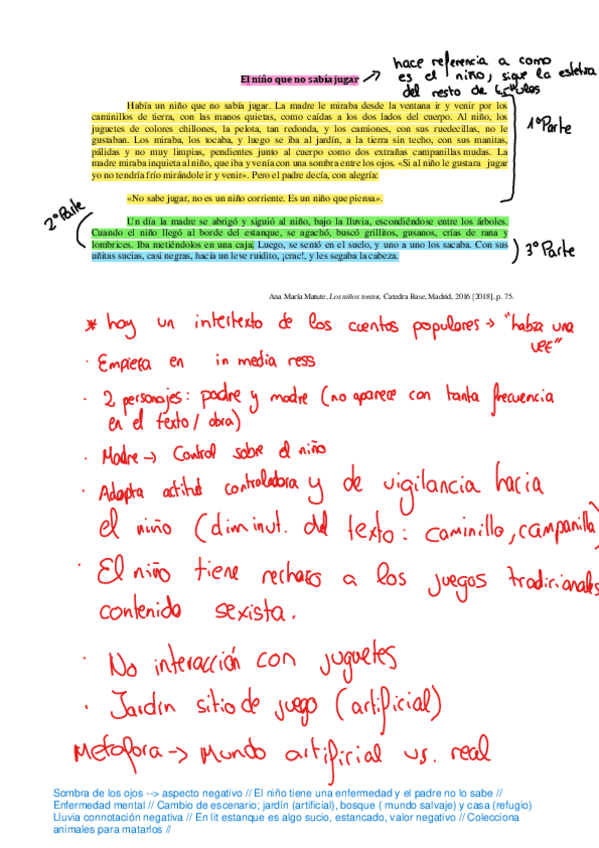 El niño que no sabía jugar
hace referencia a como
es el niño, sigue la estetica
del resto de títulos
Había un niño que no sabía jugar. La madre le miraba desde la ventana ir y venir por los
caminillos de tierra, con las manos quietas, como caídas a los dos lados del cuerpo. Al niño, los
juguetes de colores chillones, la pelota, tan redonda, y los camiones, con sus ruedecillas, no le
gustaban. Los miraba, los tocaba, y luego se iba al jardín, a la tierra sin techo, con sus manitas,
pálidas y no muy limpias, pendientes junto al cuerpo como dos extrañas campanillas mudas. La
madre miraba inquieta al niño, que iba y venía con una sombra entre los ojos. «Si al niño le gustara jugar
yo no tendría frío mirándole ir y venir». Pero el padre decía, con alegría:
1º Parte
«No sabe jugar, no es un niño corriente. Es un niño que piensa».
2º Parte
Un día la madre se abrigó y siguió al niño, bajo la lluvia, escondiéndose entre los árboles.
Cuando el niño llegó al borde del estanque, se agachó, buscó grillitos, gusanos, crías de rana y
lombrices. Iba metiéndolos en una caja. Luego, se sentó en el suelo, y uno a uno los sacaba. Con sus
uñitas sucias, casi negras, hacía un leve ruidito, ¡crac!, y les segaba la cabeza.
3º Parte
Ana María Matute, Los niños tontos, Catedra Base, Madrid, 2016 [2018], p. 75.
* hay un intertexto de los cuentos populares → "había una
vez"
· Empieza en in media ress
· 2 personajes: padre y madre (no aparece con tanta frecuencia
en el texto / obra)
· Madre → Control sobre el niño
· Adapta actitud controladora y de vigilancia hacia
el niño (diminut. del texto: caminillo, campanilla)
· El niño tiene rechazo a los juegos tradicionales
contenido sexista.
· No interacción con juguetes
· Jardín sitio de juego (artificial)
Metáfora → Mundo artificial vs. real
Sombra de los ojos --> aspecto negativo // El niño tiene una enfermedad y el padre no lo sabe //
Enfermedad mental // Cambio de escenario; jardín (artificial), bosque ( mundo salvaje) y casa (refugio)
Lluvia connotación negativa // En lit estanque es algo sucio, estancado, valor negativo // Colecciona
animales para matarlos //